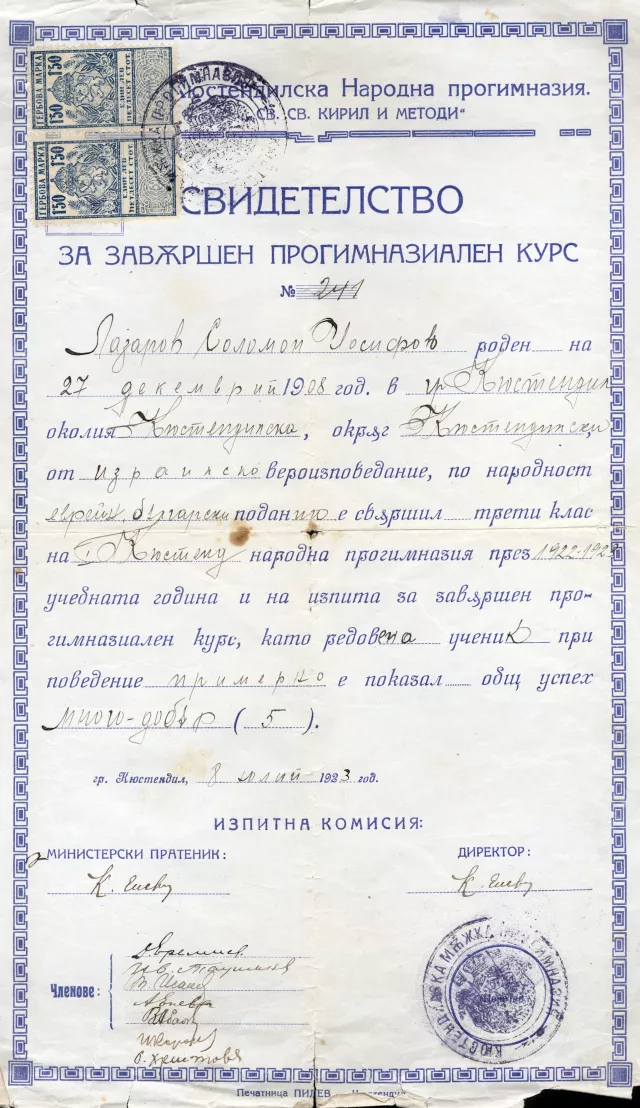 ГЕРБОВА МАРКА 1'50 ЕДИН ЛЕВ ПЕТДЕСЕТ СТОТ.
ГЕРБОВА МАРКА 1'50 ЕДИН ЛЕВ ПЕТДЕСЕТ СТОТ.
Кюстендилска Народна прогимназия.
„СВ. СВ. КИРИЛ И МЕТОДИ“
СВИДЕТЕЛСТВО
ЗА ЗАВѪРШЕН ПРОГИМНАЗИАЛЕН КУРС
№ 241
Лазаров Соломон Йосифов роден на
27 декемврий 1908 год. в гр. Кюстендил
околия Кюстендилска, окрѫг Кюстендилски,
от израилско вероизповедание, по народност
евреин, бѫлгарски подан е свѫршил трети клас
на I Кюстенд народна прогимназия през 1922-192
учебната година и на изпита за завѫршен про-
гимназиален курс, като редовен ученик при
поведение примерно е показал общ успех
много-добър (5).
гр. Кюстендил, 8 юлий 1923 год.
ИЗПИТНА КОМИСИЯ:
МИНИСТЕРСКИ ПРАТЕНИК:
ДИРЕКТОР:
Членове:
КЮСТЕНДИЛСКА МѪЖКА ПРОГИМНАЗИЯ
Печатница ПИЛЕВ Кюстендил